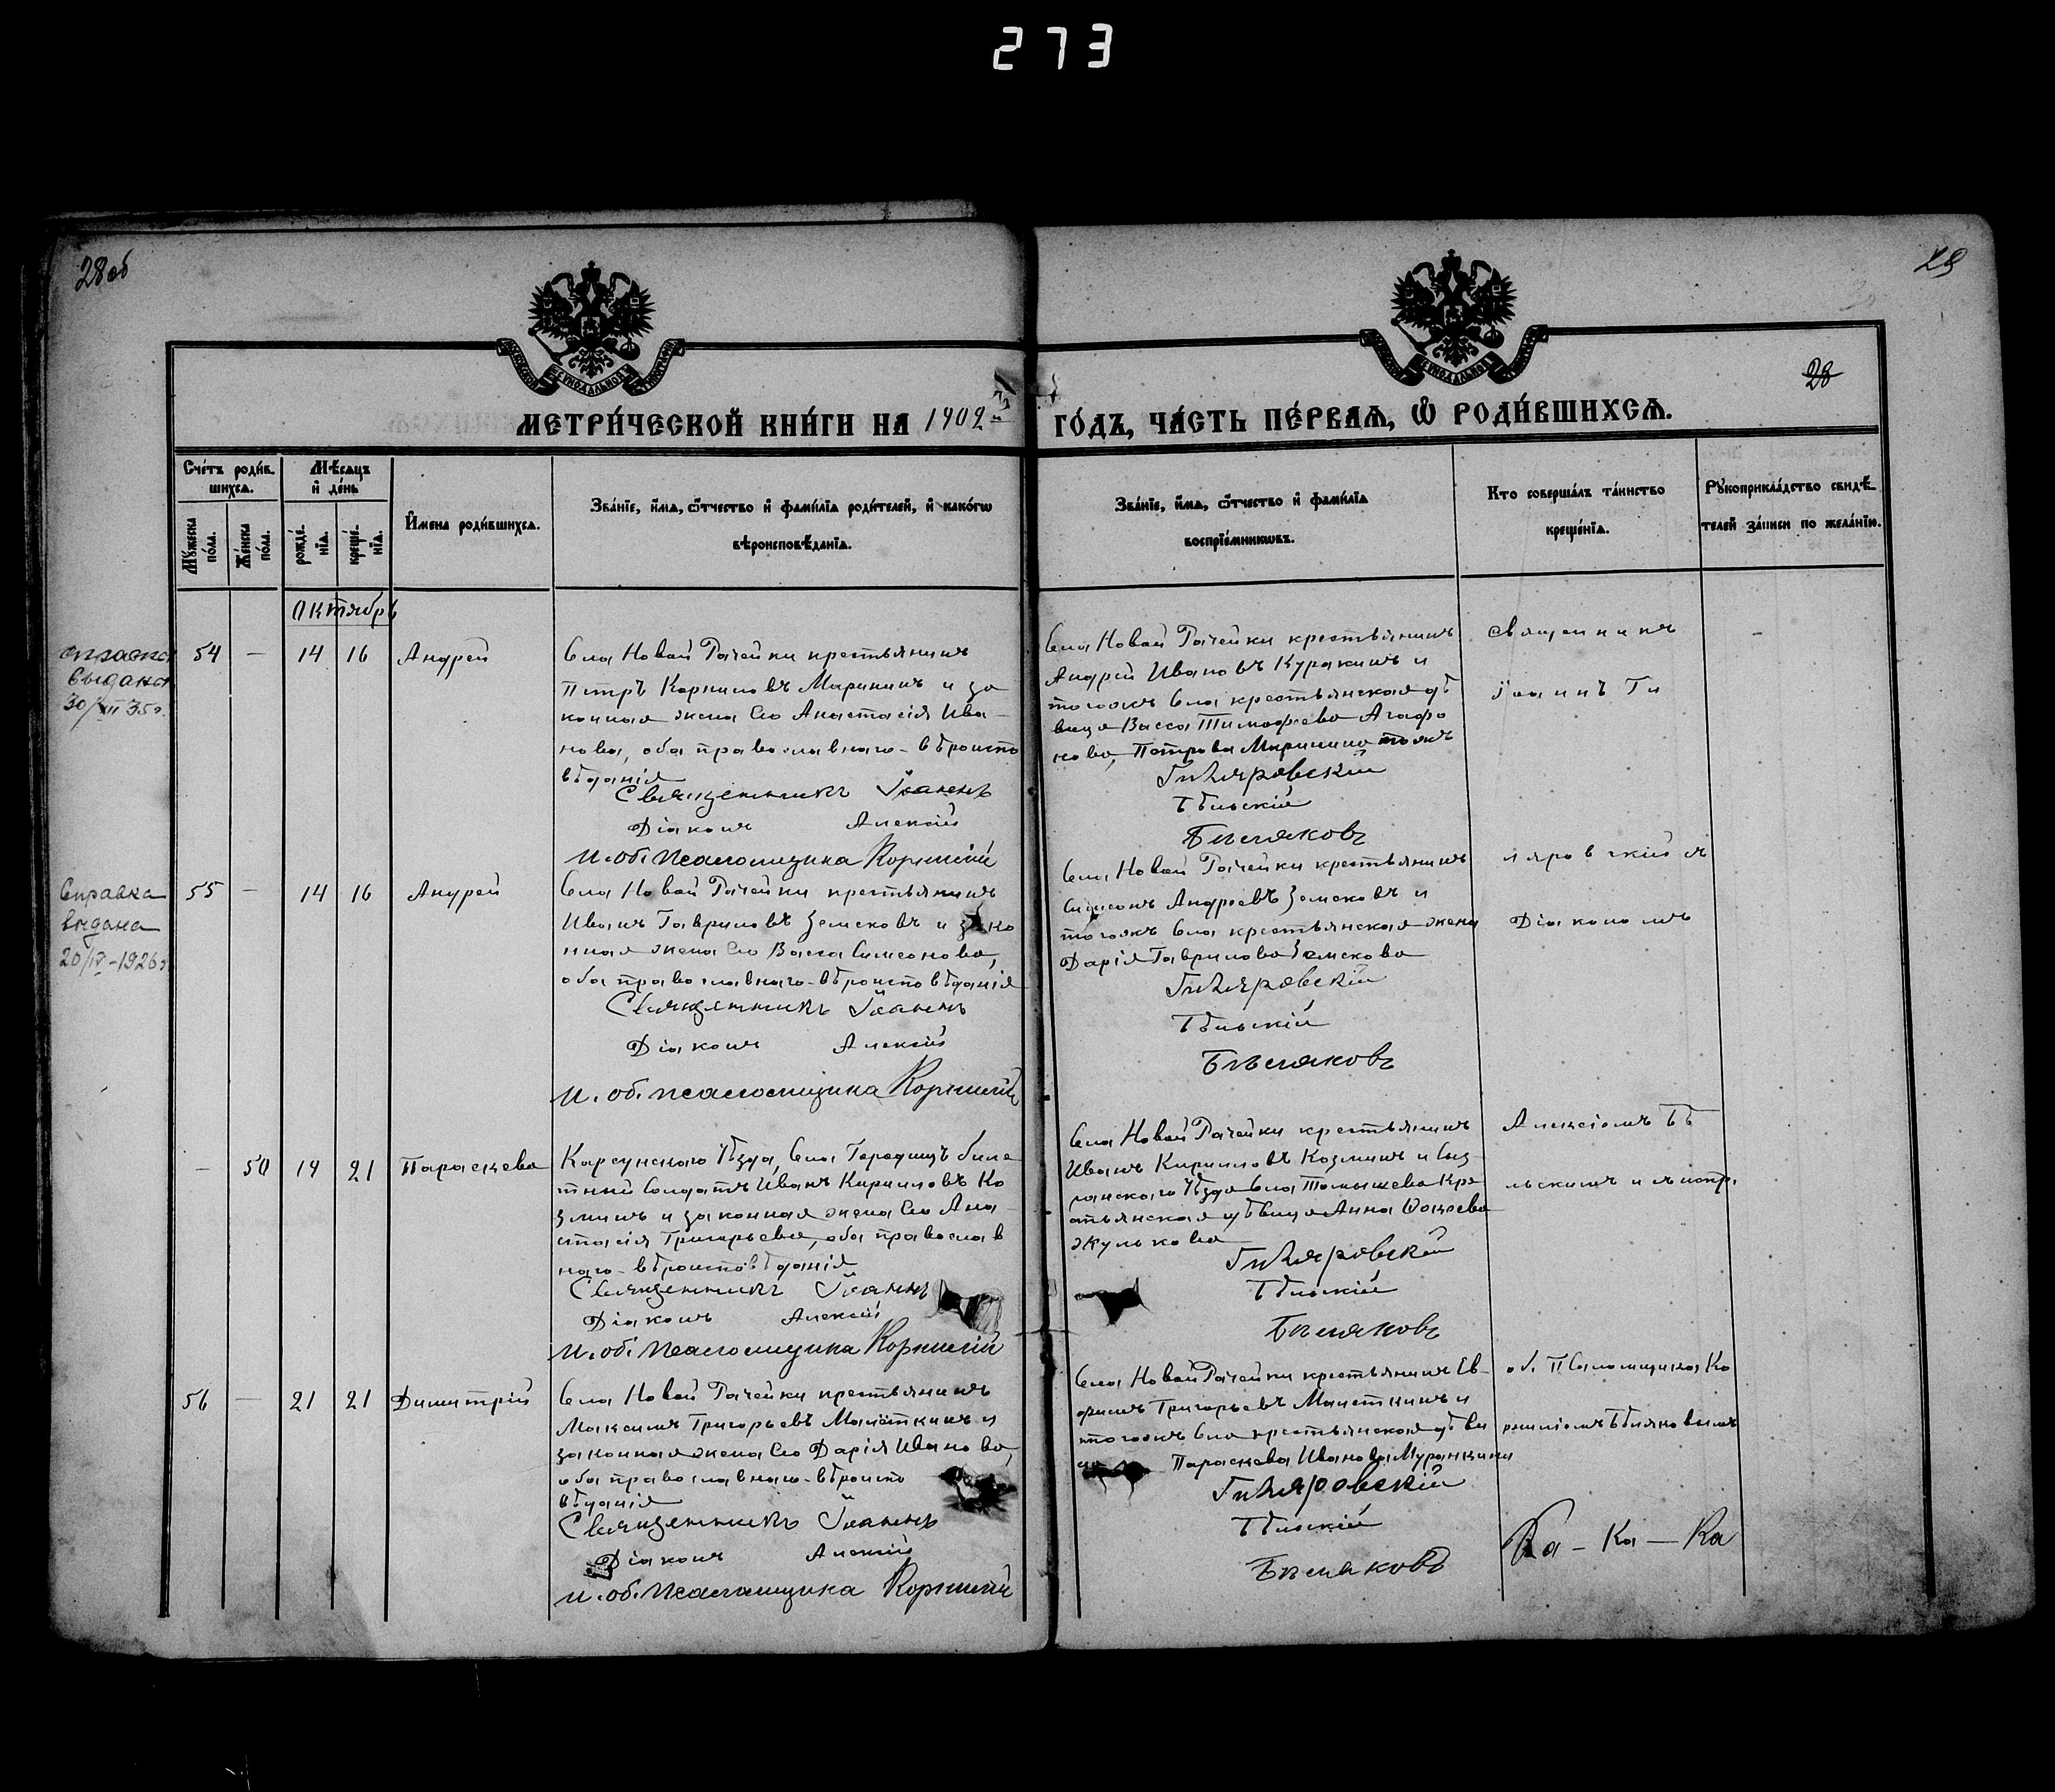 273
28 об
29
28
МЕТРИ́ЧЕСКОЙ КНИ́ГИ НА 1902 й ГО́ДЪ, ЧА́СТЬ ПЕ́РВАѦ, Ѿ РОДИ́ВШИХСѦ.
Сче́тъ роди́в-
шихсѧ.
Мѣ́сѧцъ
и҆ де́нь
Мꙋ́жеска по́ла.
Же́нска по́ла.
рожде́-
нїѧ.
креще́-
нїѧ.
И҆мена̀ роди́вшихсѧ.
Зва́нїе, и҆́мѧ, ѻ҆́тчество и҆ фами́лїѧ роди́телей, и҆ како́гѡ
вѣроисповѣ́данїѧ.
Зва́нїе, и҆́мѧ, ѻ҆́тчество и҆ фами́лїѧ
воспрїе́мникѡвъ.
Кто̀ соверша́лъ та́инство
креще́нїѧ.
Рꙋкоприкла́дство свидѣ́-
телей за́писи по жела́нїю.
Октябрь
справка
выдана
30/XII 35 г.
54 — 14 16 Андрей
Села Новой Рачейки крестьянинъ
Петръ Корниловъ Марининъ и за
конная жена его Анастасія Ива-
нова, оба православнаго-вѣроиспо
вѣданія
Священникъ Іоаннъ
Діаконъ Алексій
И. об. псаломщика Корнилій
Села Новой Рачейки крестьянинъ
Андрей Ивановъ Куракинъ и
тогожъ села крестьянская дѣ
вица Васса Тимофеева Агафо
нова, Петрова Маринина тожъ
Гиляровскій
Бѣльскій
Бѣляковъ
Священникъ
Іоаннъ Ги
Справка
выдана
20/IV-1926 г.
55 — 14 16 Андрей
Села Новой Рачейки крестьянинъ
Иванъ Гавриловъ Земсковъ и зако
нная жена его Васса Симеонова,
оба православнаго-вѣроисповѣданія
Священникъ Іоаннъ
Діаконъ Алексій
И. об. псаломщика Корнилій
Села Новой Рачейки крестьянинъ
Симеонъ Андреевъ Земсковъ и
тогожъ села крестьянская жена
Дарія Гаврилова Земскова
Гиляровскій
Бѣльскій
Бѣляковъ
ляровскій съ
Діакономъ
— 50 14 21 Параскева
Карсунскаго Уѣзда, села Городищъ биле
тный солдатъ Иванъ Кирилловъ Ко
зминъ и законная жена его Ана
стасія Григорьева, оба православ
наго-вѣроисповѣданія
Священникъ Іоаннъ
Діаконъ Алексій
И. об. псаломщика Корнилій
Села Новой Рачейки крестьянинъ
Иванъ Кирилловъ Козминъ и Сыз-
ранскаго Уѣзда села Томышева кре
стьянская дѣвица Анна
Жулькова
Гиляровскій
Бѣльскій
Бѣляковъ
Алексіемъ Бѣ
льскимъ и
56 — 21 21 Димитрій
Села Новой Рачейки крестьянинъ
Максимъ Григорьевъ Малёткинъ и
законная жена его Дарія Иванова,
оба православнаго-вѣроиспо
вѣданія
Священникъ Іоаннъ
Діаконъ Алексій
И. об. псаломщика Корнилій
Села Новой Рачейки крестьянинъ Ев-
фимъ Григорьевъ Малеткинъ и
тогожъ села крестьянская дѣви
ца Параскева Иванова Муранкина
Гиляровскій
Бѣльскій
Бѣляковъ
об. Псаломщика Ко
рниліемъ Бѣляковымъ
Ка - Ка — Ка